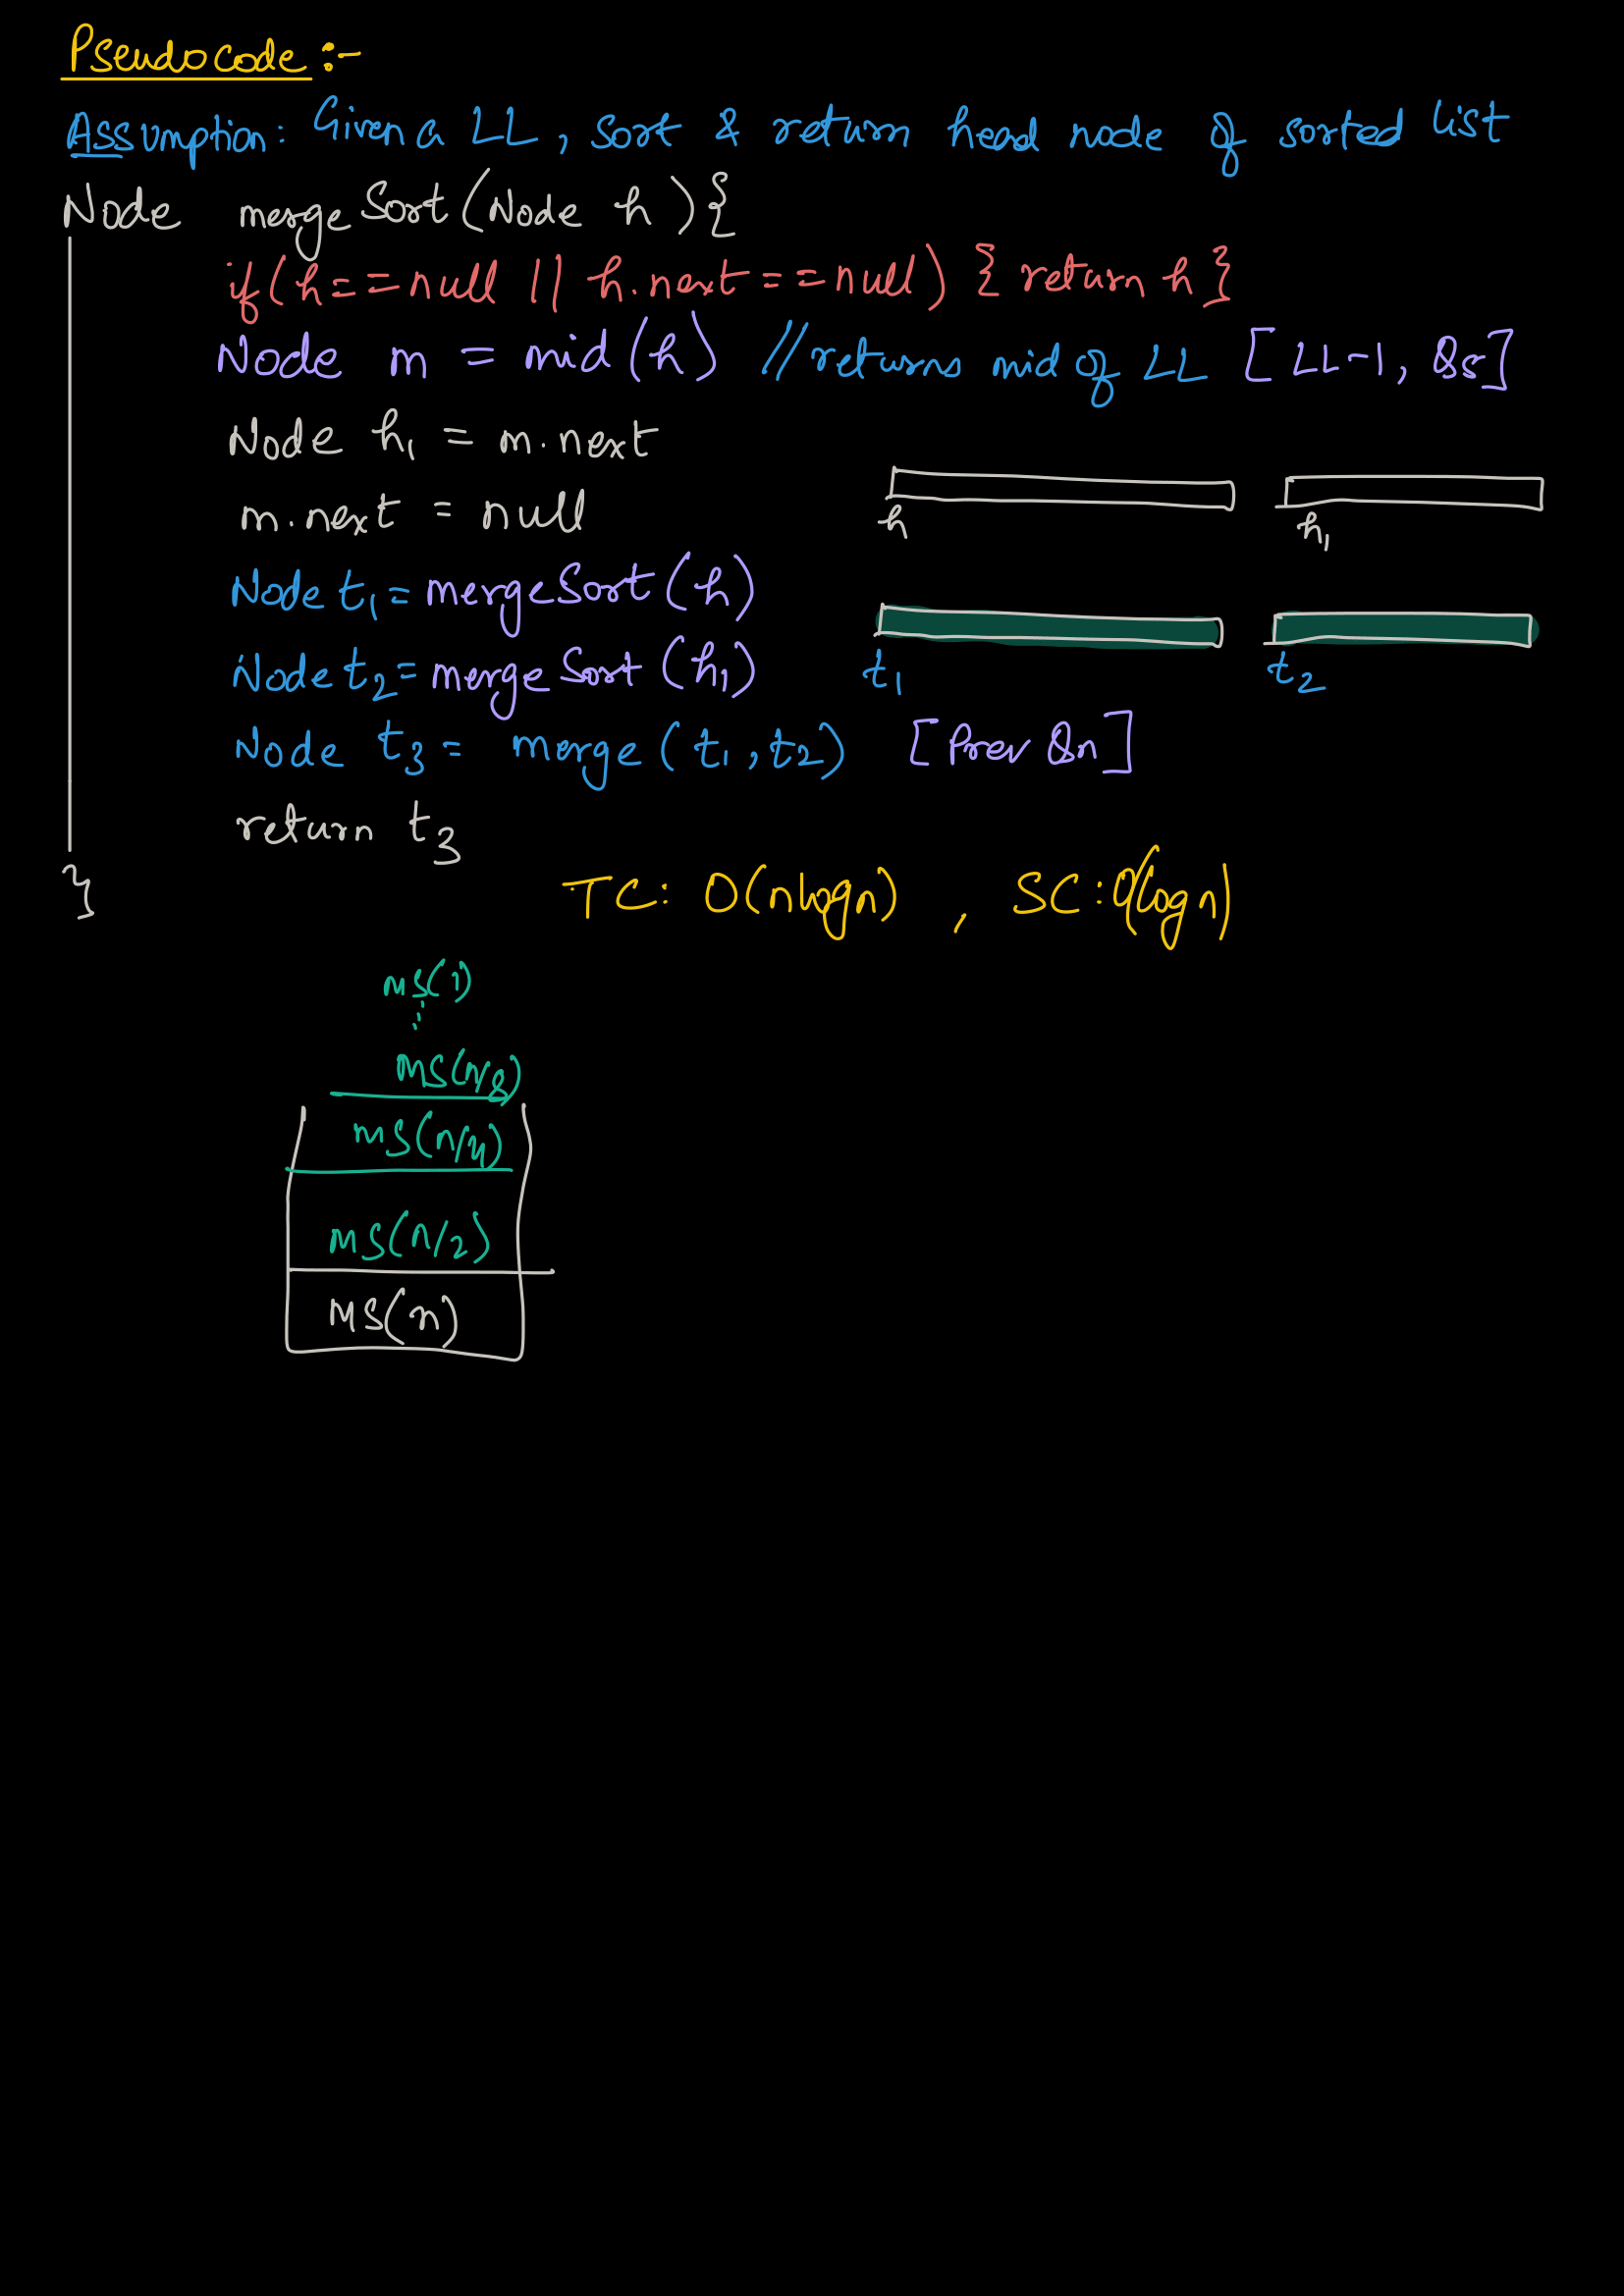 Pseudocode:-
Assumption: Given a LL, sort & return head node of sorted list
Node mergeSort(Node h){
if(h==null || h.next==null) { return h }
Node m = mid(h) //returns mid of LL [LL-1, Q5]
Node h1 = m.next
m.next = null
h h1
Node t1 = mergeSort(h)
Node t2 = mergeSort(h1)
t1 t2
Node t3 = merge(t1, t2) [Prev Qn]
return t3
}
TC: O(nlogn) , SC: O(logn)
MS(1)
MS(n/8)
MS(n/4)
MS(n/2)
MS(n)